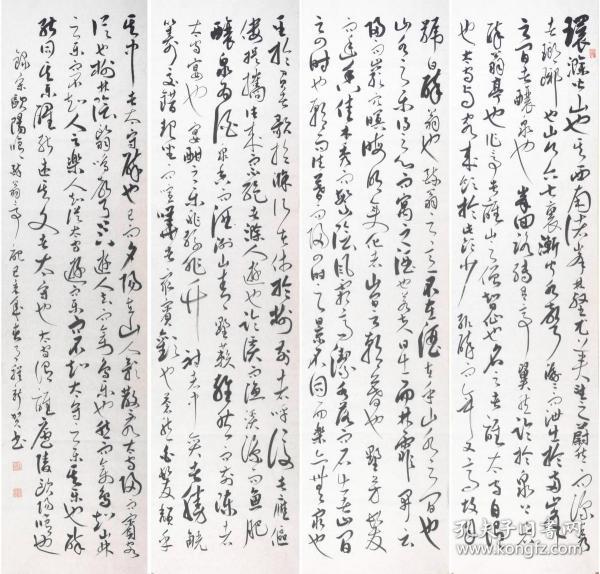 環滁皆山也其西南諸峰林壑尤美望之蔚然而深秀
者瑯琊也山行六七里漸聞水聲潺潺而瀉出於兩峰
之間者釀泉也峰回路轉有亭翼然臨於泉上
醉翁亭也作亭者誰山之僧智仙也名之者誰太守自謂
也太守與客來飲於此飲少輒醉而年又高故自
號曰醉翁也醉翁之意不在酒在乎山水之間也
山水之樂得之心而寓之酒也若夫日出而林霏開雲
歸而巖穴暝晦明變化者山間之朝暮也野芳發
而幽香佳木秀而繁陰風霜高潔水落而石出者山間
之四時也朝而往暮而歸四時之景不同而樂亦無窮也
至於負者歌於滁行者休於樹前者呼後者應傴
僂提攜往來而不絕者滁人遊也臨溪而漁溪深而魚肥
釀泉為酒泉香而酒洌山肴野蔌雜然而前陳者
太守宴也宴酣之樂非絲非竹射者中弈者勝觥
籌交錯起坐而喧嘩者眾賓歡也蒼然白髮頹乎
其中者太守醉也已而夕陽在山人影散亂太守歸而賓客
從也樹林陰翳鳴聲上下遊人去而禽鳥樂也然而禽鳥知山林
之樂而不知人之樂人知從太守遊而樂而不知太守之樂其樂也醉
能同其樂醒能述其文者太守也太守謂誰廬陵歐陽修也
錄宋歐陽修醉翁亭記
孔夫子旧书网
www.kongfz.com